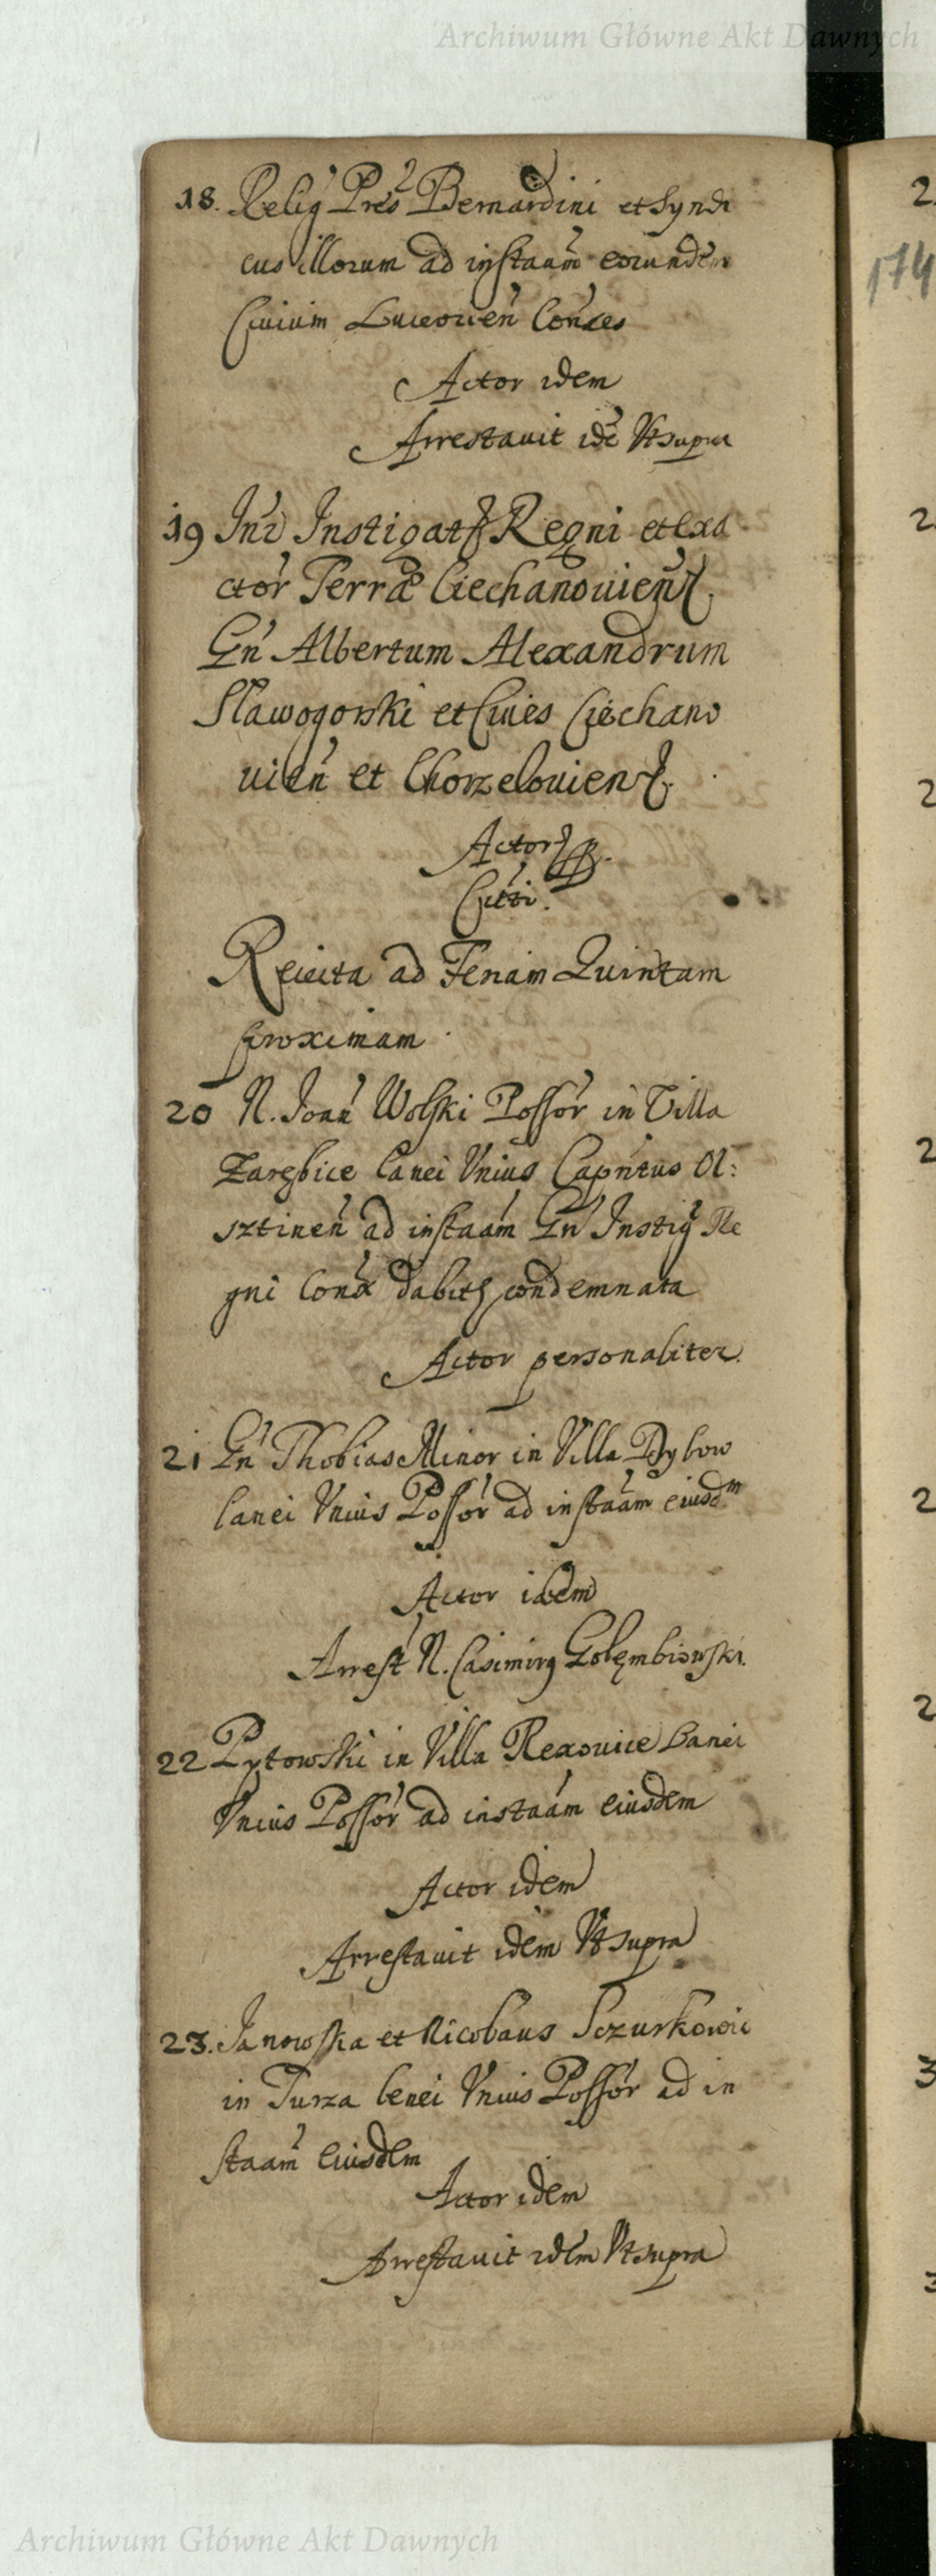 Archiwum Główne Akt Dawnych
18. Relig Pres Bernardini et Syndi
cus illorum ad instaam eorundem
Civium Luceorien Conces
Actor idem
Arrestavit ide Ut supra
174
19 Inr Instigator Regni et Exa
ctor Terræ Ciechanovien
Gn Albertum Alexandrum
Slawogorski et Cives Ciechano
vien et Chorzelovien
Actor
Citti.
Reiecta ad Feriam Quintam
proximam
20 N. Joan Wolski Possor in Villa
Zarębice lanei Unius Capntus Ol:
sztinen ad instaam Gn Instig Re
gni Cona dabitr condemnata
Actor personaliter.
21 Gn Thobias Minor in Villa Dybow
lanei Unius Possor ad instaam eiusdm
Actor idem
Arrest N. Casimirg Golembiowski.
22 Pytowski in Villa Rexovice Lanei
Unius Possor ad instaam eiusdem
Actor idem
Arrestavit idem Ut supra
23. Janowska et Nicolaus Sczurkowic
in Turza lenei Unius Possor ad in
staam Eiusdem
Actor idem
Arrestavit idem Ut supra
Archiwum Główne Akt Dawnych